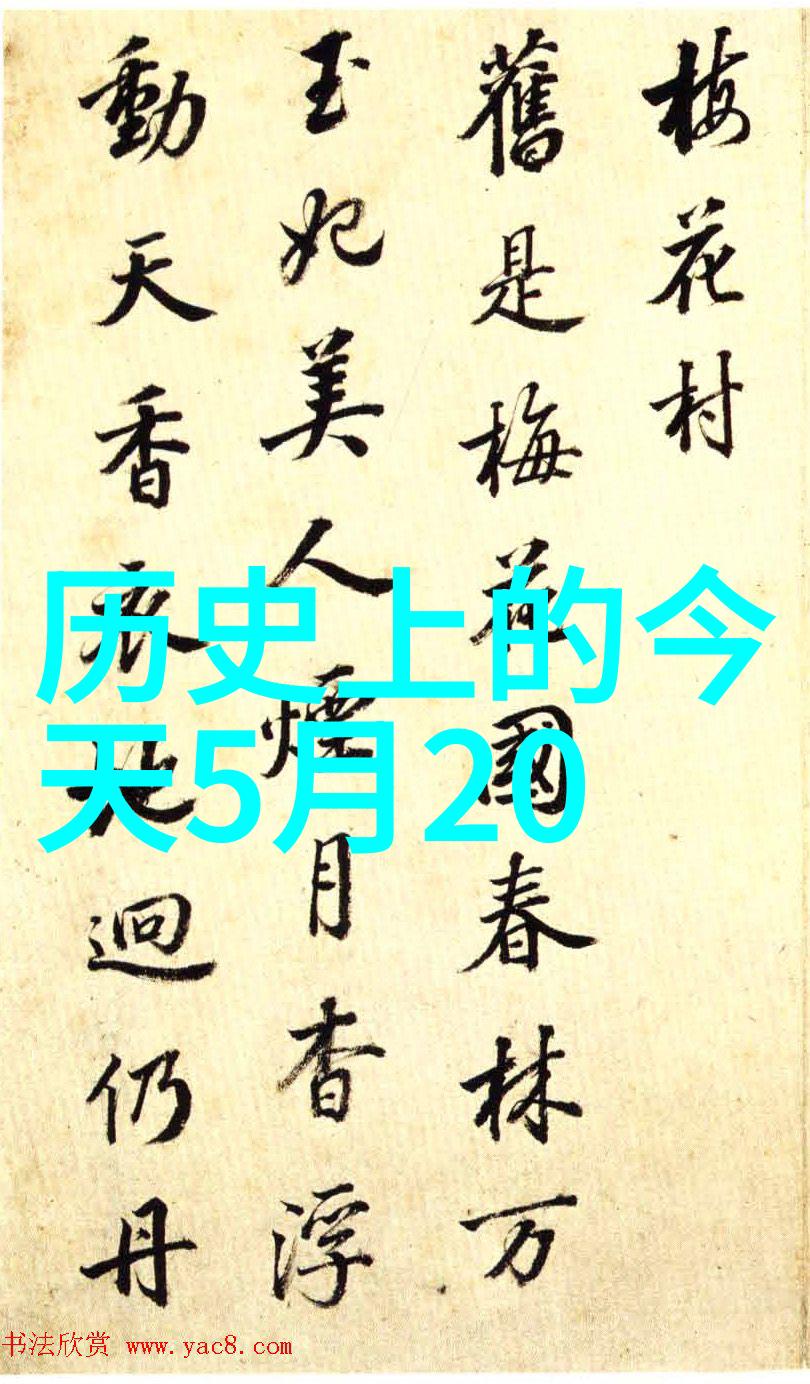 梅花村
舊是梅花國春林万
玉妃美人煙月杳浮
動天香衣袂迥仍丹
历史上的今
天5月20
书法欣赏 www.yac8.com